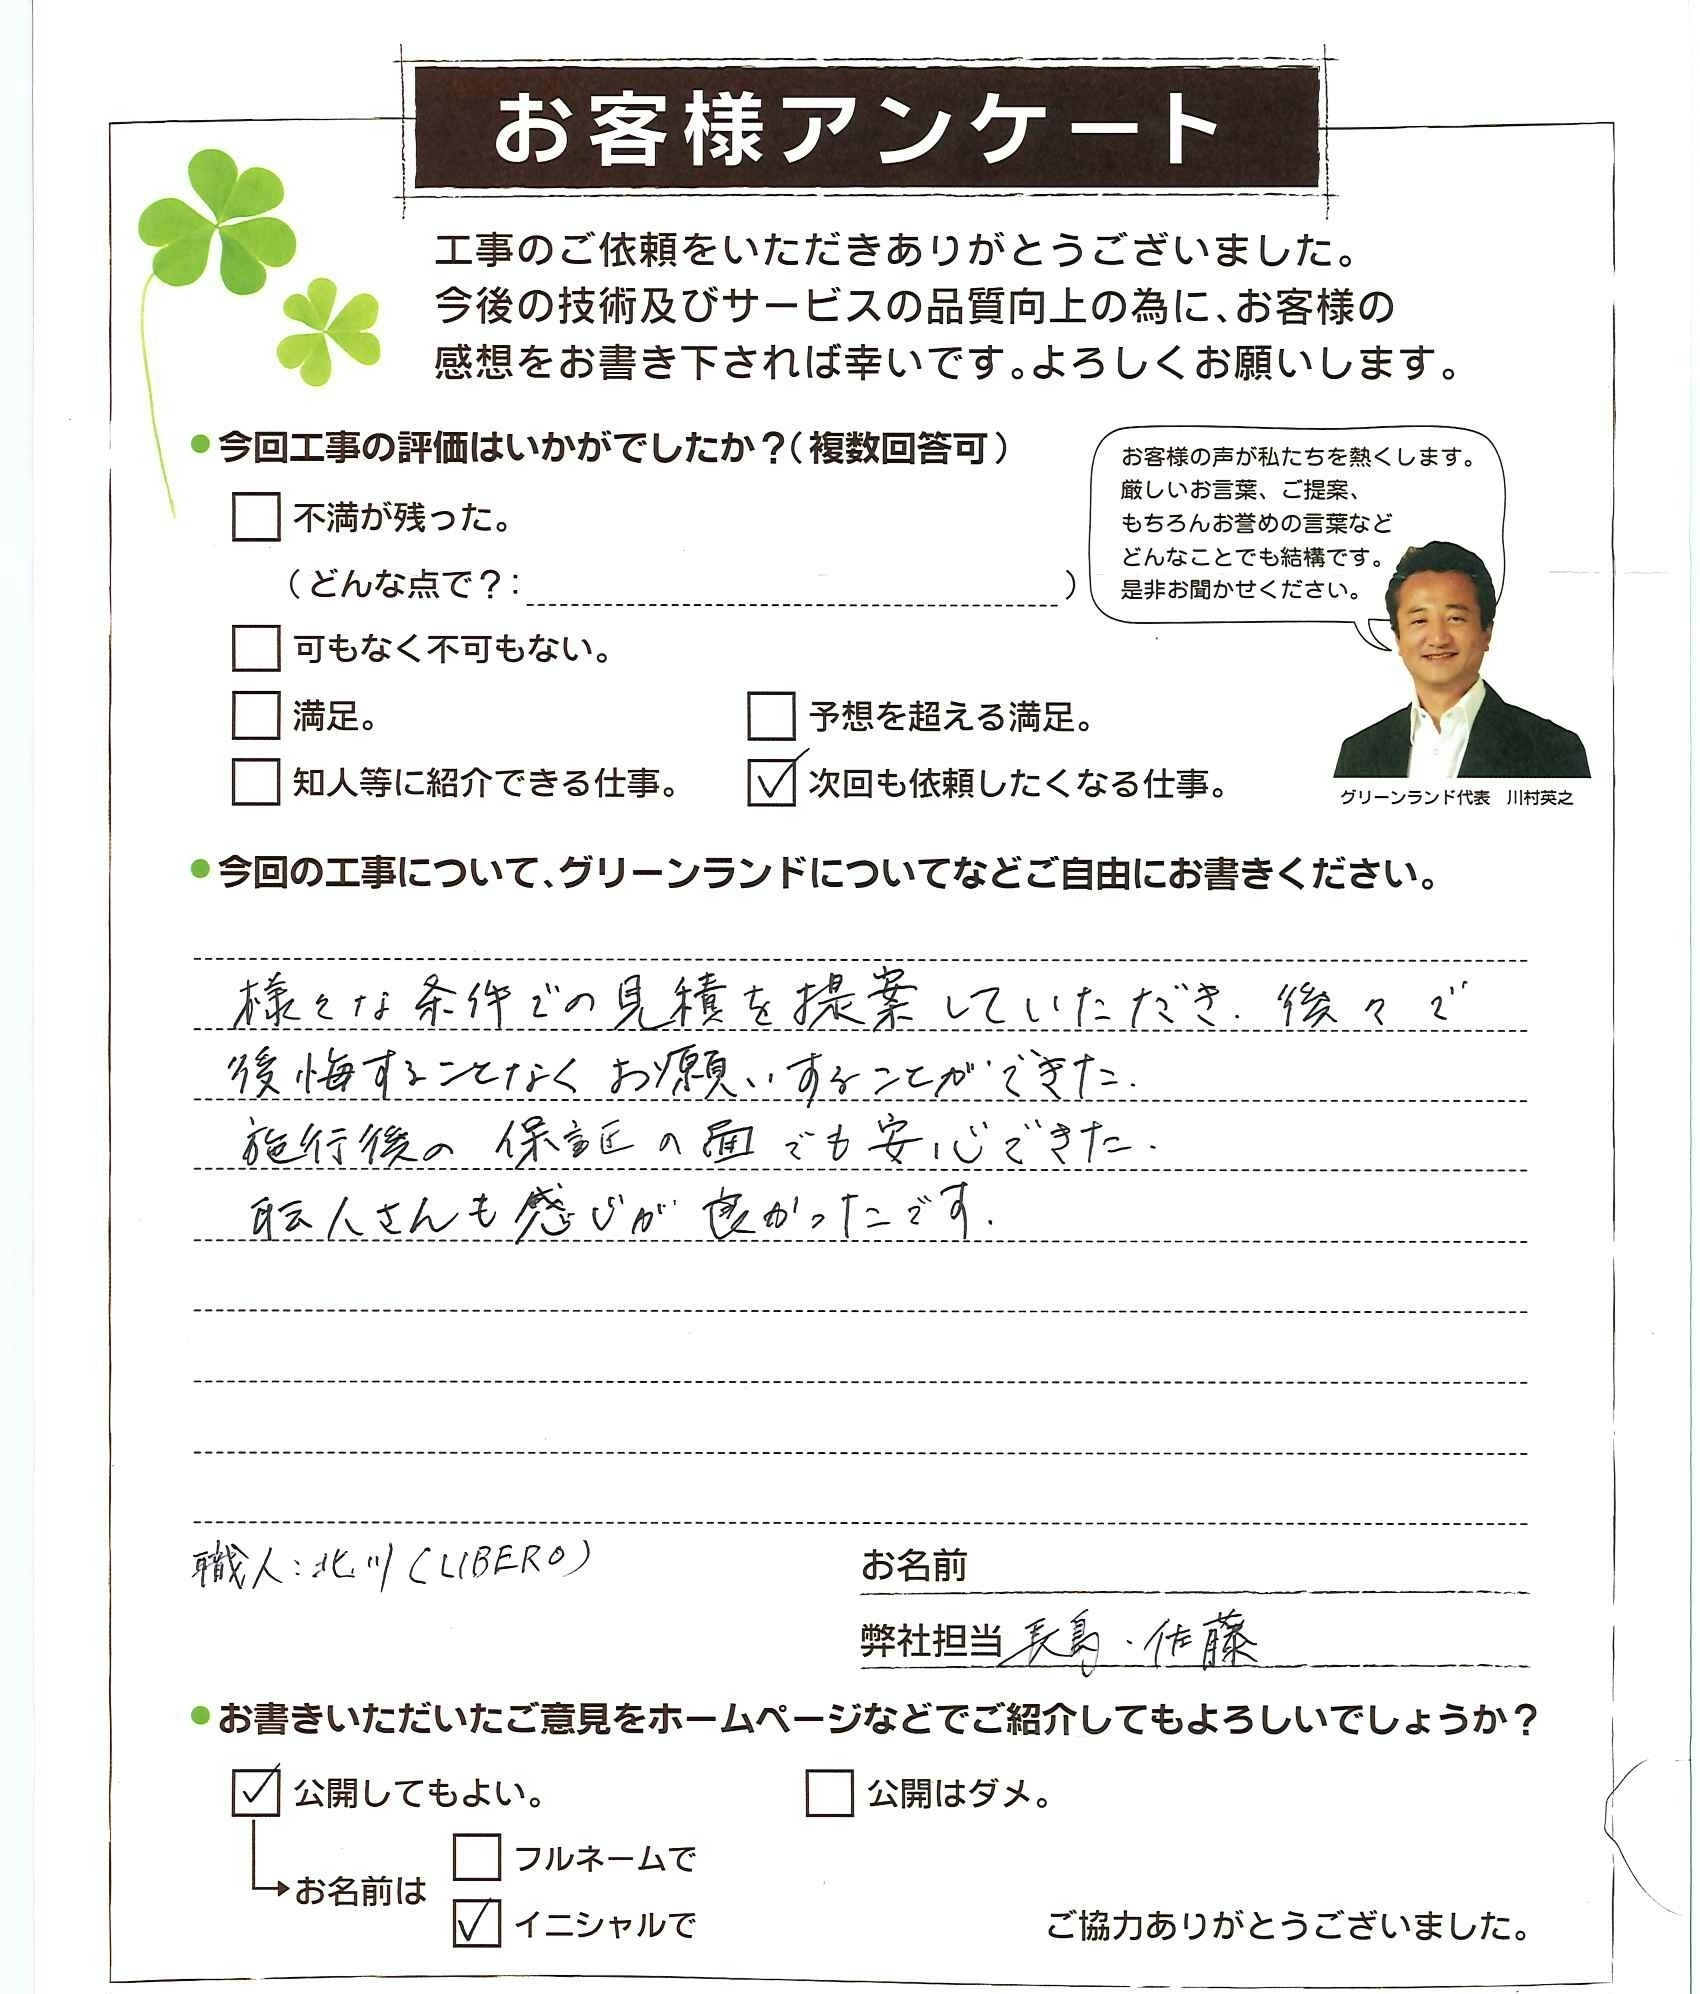 お客様アンケート
工事のご依頼をいただきありがとうございました。
今後の技術及びサービスの品質向上の為に、お客様の
感想をお書き下されば幸いです。よろしくお願いします。
●今回工事の評価はいかがでしたか？（複数回答可）
不満が残った。
（どんな点で？：　）
可もなく不可もない。
満足。
予想を超える満足。
知人等に紹介できる仕事。
次回も依頼したくなる仕事。
お客様の声が私たちを熱くします。
厳しいお言葉、ご提案、
もちろんお誉めの言葉など
どんなことでも結構です。
是非お聞かせください。
グリーンランド代表　川村英之
●今回の工事について、グリーンランドについてなどご自由にお書きください。
様々な条件での見積を提案していただき、後々で
後悔することなくお願いすることができた。
施行後の保証の面でも安心できた。
転人さんも感じが良かったです。
職人：北川（LIBERO）
お名前
弊社担当 長島・佐藤
●お書きいただいたご意見をホームページなどでご紹介してもよろしいでしょうか？
公開してもよい。
公開はダメ。
お名前は
フルネームで
イニシャルで
ご協力ありがとうございました。